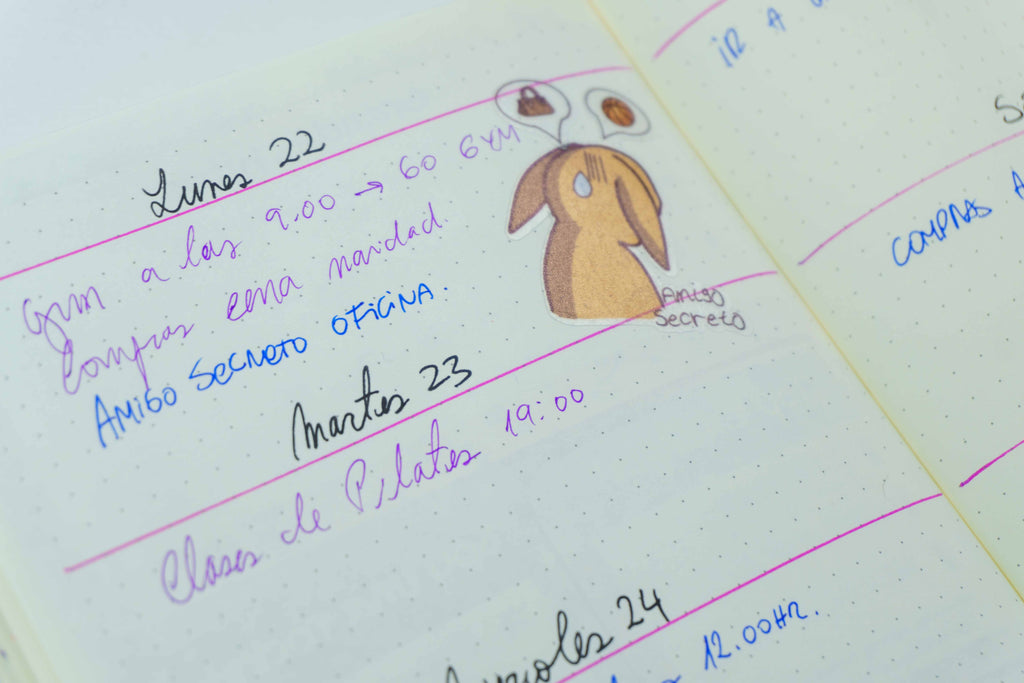 Lunes 22
Gym a las 9.00 → GO GYM
Compras cena navidad
AMIGO SECRETO OFICINA.
Amigo
Secreto
Martes 23
Clases de Pilates 19:00
24
12.00HR.
IR A
COMPRAS